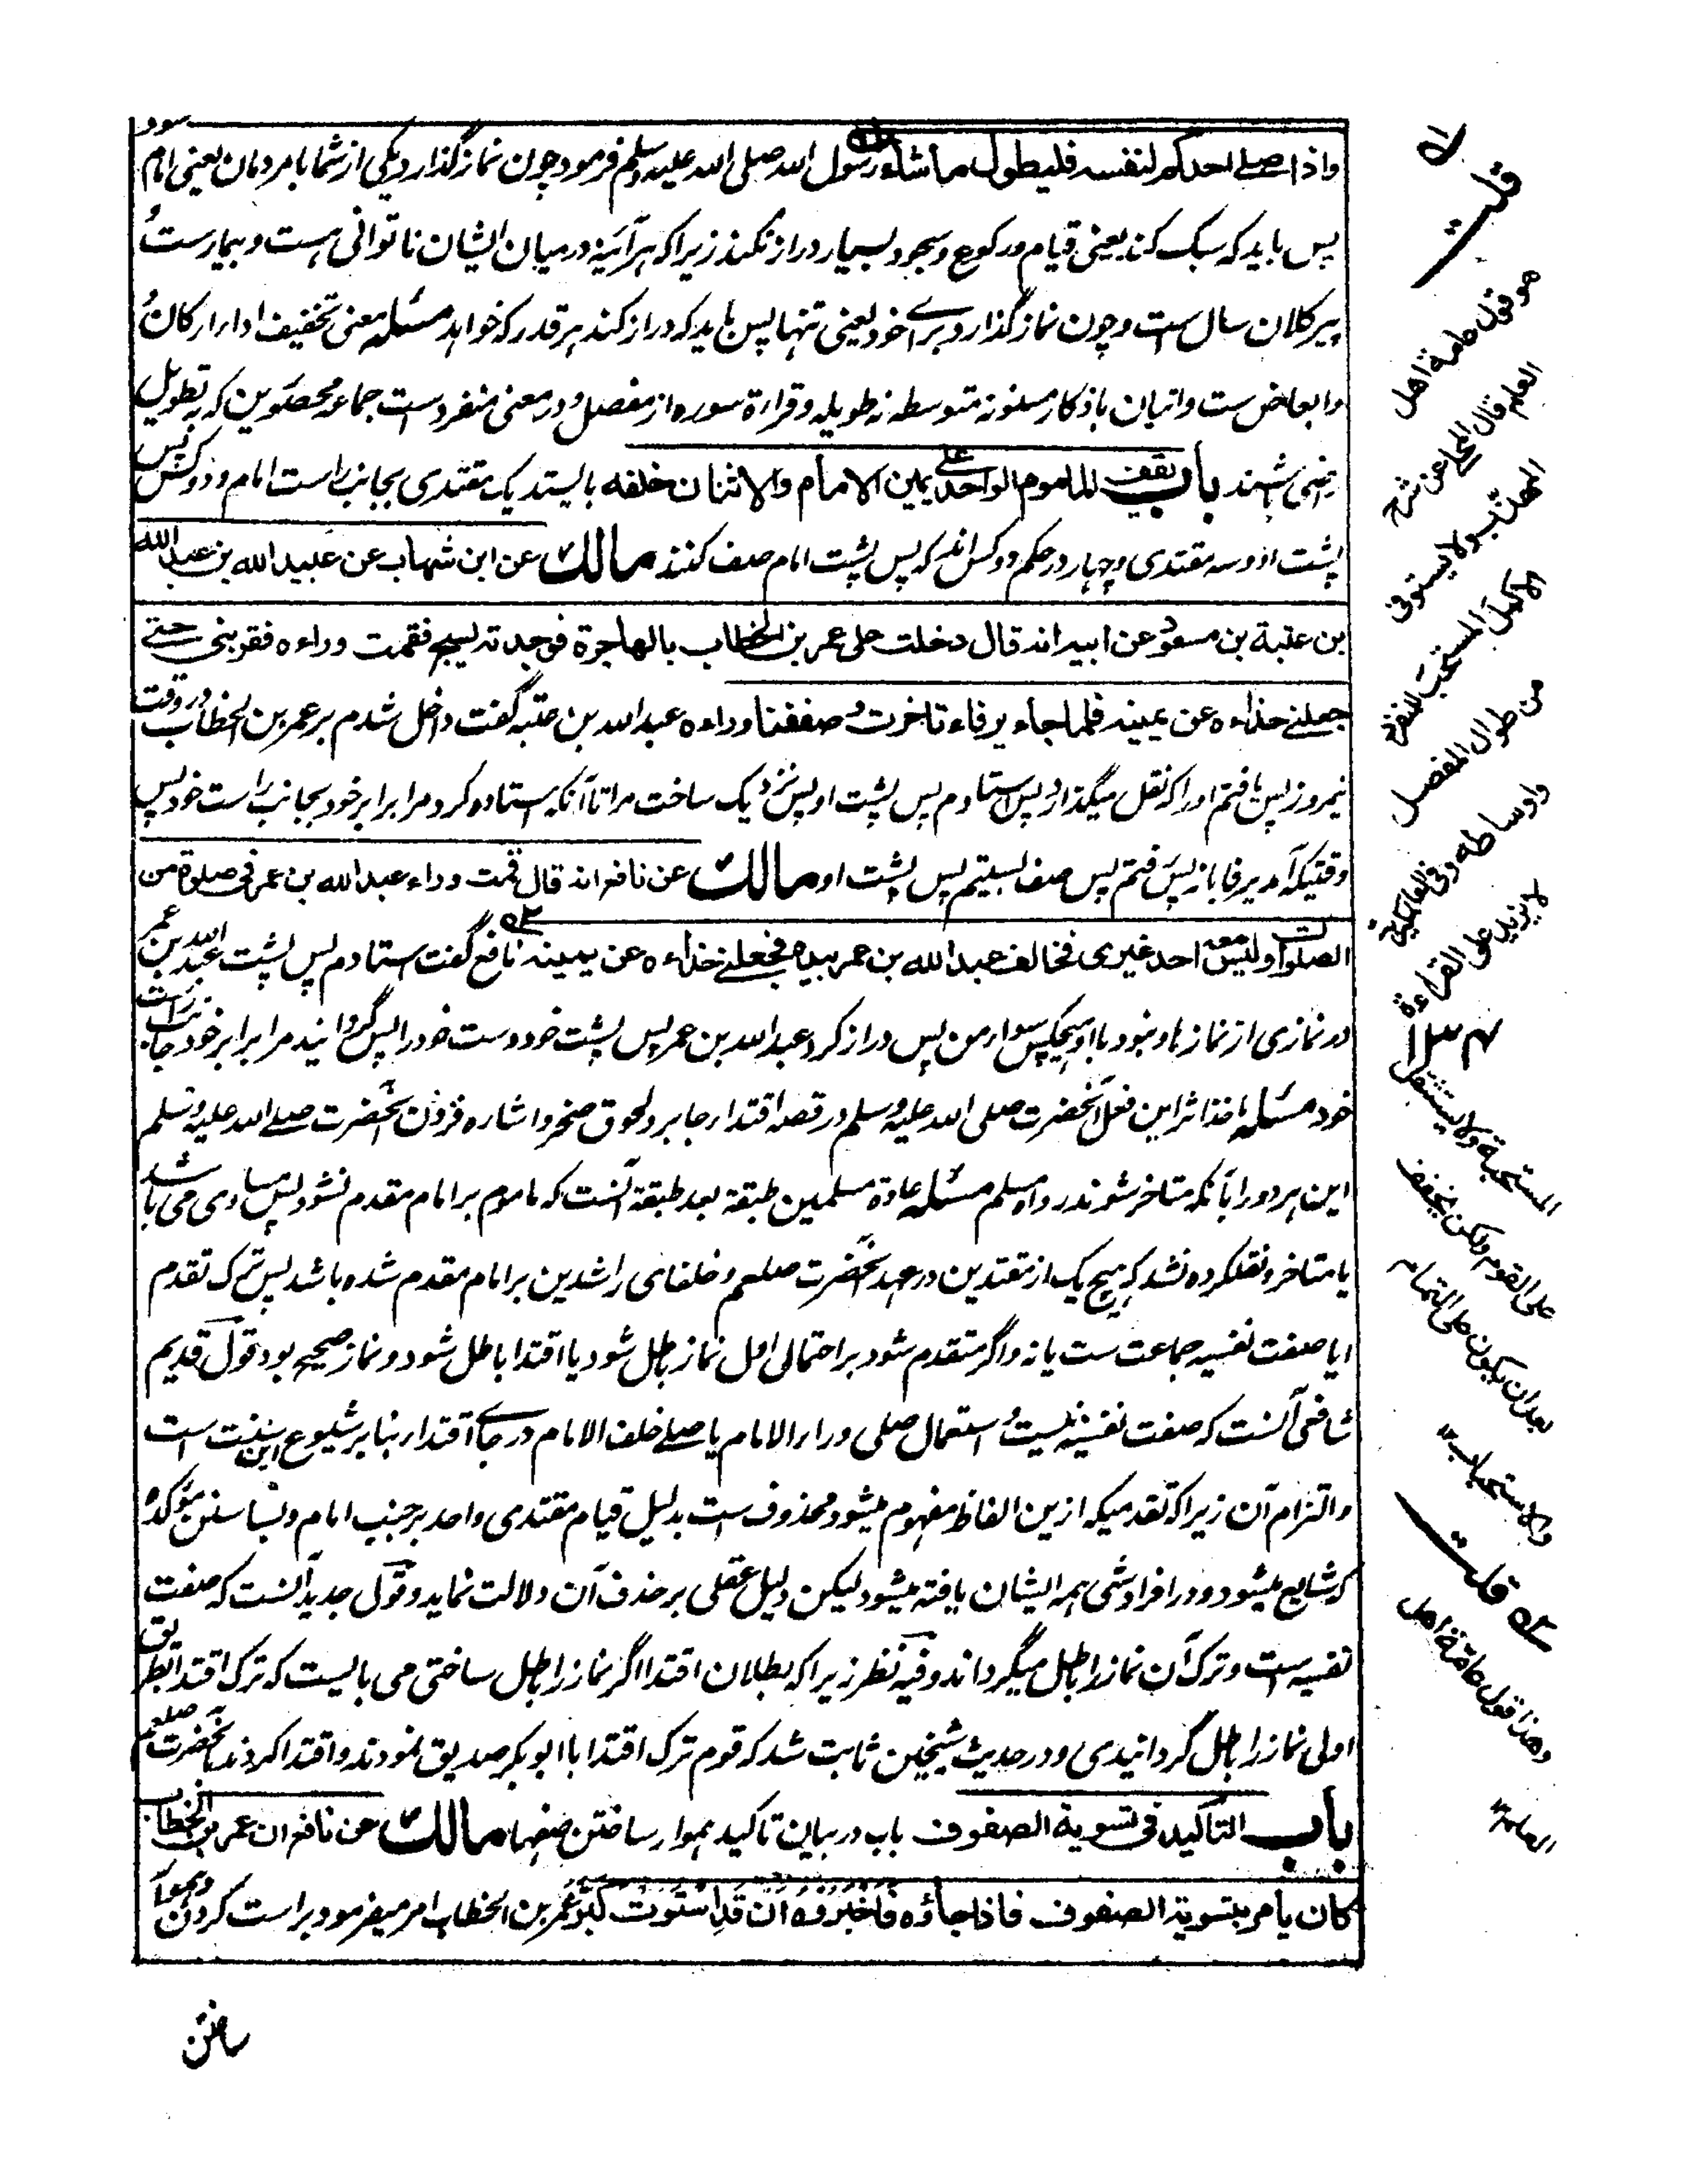 واذا صلے احدكم لنفسه فليطول ما شاء رسول الله صلی الله علیه وسلم فرمود چون نماز گذارد یکی از شما با مردمان یعنی امام
پس باید که سبک کند یعنی قیام و رکوع و سجود بسیار دراز نکند زیرا که هر آئینه در میان ایشان ناتوانی هست و بیمارست و
پیر کلان سال ست و چون نماز گذارد برای خود یعنی تنها پس باید که دراز کند هر قدر که خواهد مسئله معنی تخفیف ادا ارکان و
وابعاض ست و اتیان باذکار مسنونه متوسطه نه طویله و قراءة سوره از مفصل و در معنی منفردست جماعه محصورین که به تطویل
راضی باشند باب يقف الماموم الواحد على يمين الامام والاثنان خلفه بایستد یک مقتدی بجانب راست امام و دو کس پس
پشت او و سه مقتدی و چهار در حکم دو کس اند که پس پشت امام صف کنند مالك عن ابن شهاب عن عبيد الله بن عبد الله
بن عتبة بن مسعود عن ابيه انه قال دخلت على عمر بن الخطاب بالهاجرة فوجدته يسبح فقمت وراءه فقربنى حتے
جعلنے حذاءه عن يمينه فلما جاء يرفاء تاخرت وصففنا وراءه عبد الله بن عتبه گفت داخل شدم بر عمر بن الخطاب در وقت
نیمروز پس یافتم او را که نفل میگذارد پس استادم پس پشت او پس نزدیک ساخت مرا تا آنکه استاده کرد مرا برابر خود بجانب راست خود پس
وقتیکه آمد یرفا باز پس رفتم پس صف بستیم پس پشت او مالك عن نافع انه قال قمت وراء عبد الله بن عمر فى صلوة من
الصلوات وليس معه احد غيرى فخالف عبد الله بن عمر بيده فجعلنے حذاءه عن يمينه نافع گفت استادم پس پشت عبد الله بن عمر
در نمازی از نمازها و نبود با او هیچکس سوای من پس دراز کرد عبد الله بن عمر پس پشت خود دست خود را پس گردانید مرا برابر خود بجانب راست
خود مسئله ماخذ اثر این فعل آنحضرت صلی الله علیه وسلم در قصه اقتدار جابر و لحوق صخر و اشاره فرمودن آنحضرت صلے الله علیه وسلم
این هر دو را بآنکه متاخر شوند رواه مسلم مسئله عادة مسلمین طبقة بعد طبقة آنست که ماموم بر امام مقدم نشود پس مساوی می باشد
یا متاخر و نقل کرده نشد که هیچ یک از مقتدین در عهد آنحضرت صلعم و خلفای راشدین بر امام مقدم شده باشد پس ترک تقدم
ایا صفت نفسیه جماعت ست یا نه و اگر متقدم شود بر احتمالی اصل نماز باطل شود یا اقتدا باطل شود و نماز صحیح بود قول قدیم
شافعی آنست که صفت نفسیه نیست و استعمال صلی وراء الامام یا صلے خلف الامام در جای اقتدار بنابر شیوع این سنت است
والتزام آن زیرا که تقدمیکه ازین الفاظ مفهوم میشود محذوف ست بدلیل قیام مقتدی واحد بر جنب امام و بسا سنن مؤکده
که شایع میشود و در افراد شی همه ایشان یافته میشود لیکن دلیل عقلی بر حذف آن دلالت نماید و قول جدید آنست که صفت
نفسیه ست و ترک آن نماز را باطل میگرداند وفیه نظر زیرا که بطلان اقتدا اگر نماز را باطل ساختی می بایست که ترک اقتدا بطریق
اولی نماز را باطل گردانیدی و در حدیث شیخین ثابت شد که قوم ترک اقتدا با ابوبکر صدیق نمودند و اقتدا کردند بآنحضرت صلعم
باب التاكيد فى تسوية الصفوف باب در بیان تاکید هموار ساختن صفها مالك عن نافع ان عمر بن الخطاب
كان يأمر بتسوية الصفوف فاذا جاؤه فاخبروه ان قد استوت كبر عمر بن الخطاب امر میفرمود براست کردن و هموار
ساختن
قلت
هو قول عامة اهل
العلم قال المحلى عن شرح
المهذب ولا يستوفى
الاكمل المستحب للمنفرد
من طوال المفصل
واوساطه وفى العالمگيرية
لا يزيد على القراءة
المستحبة ولا يستثقل
على القوم ولكن يخفف
بعد ان يكون على التمام
والاستحباب
قلت
وهذا قول عامة اهل
العلم